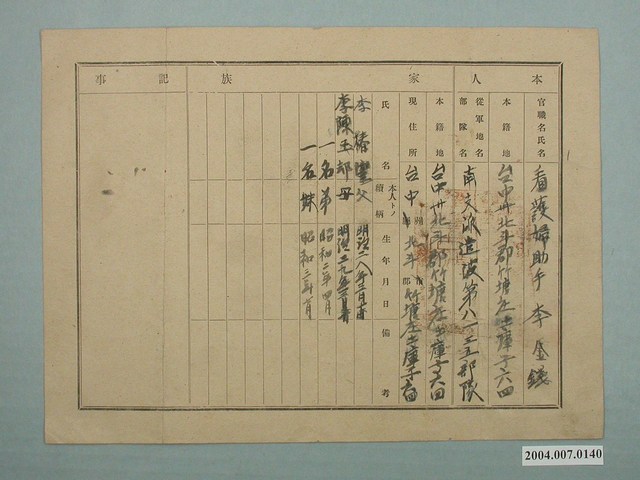 本人
官職名氏名
看護婦助手 李金錢
本籍地
台中州北斗郡竹塘庄土庫子六四
從軍地名
部隊名
南支派遣波第八一三五部隊
家族
本籍地
台中州北斗郡竹塘庄土庫子六四
現住所
台中州北斗郡竹塘庄土庫子六四
氏名
本人トノ續柄
生年月日
備考
李 父 明治二八年
李陳玉 母 明治
一名弟 昭和二年四月
一名妹 昭和三年
記事
2004.007.0140